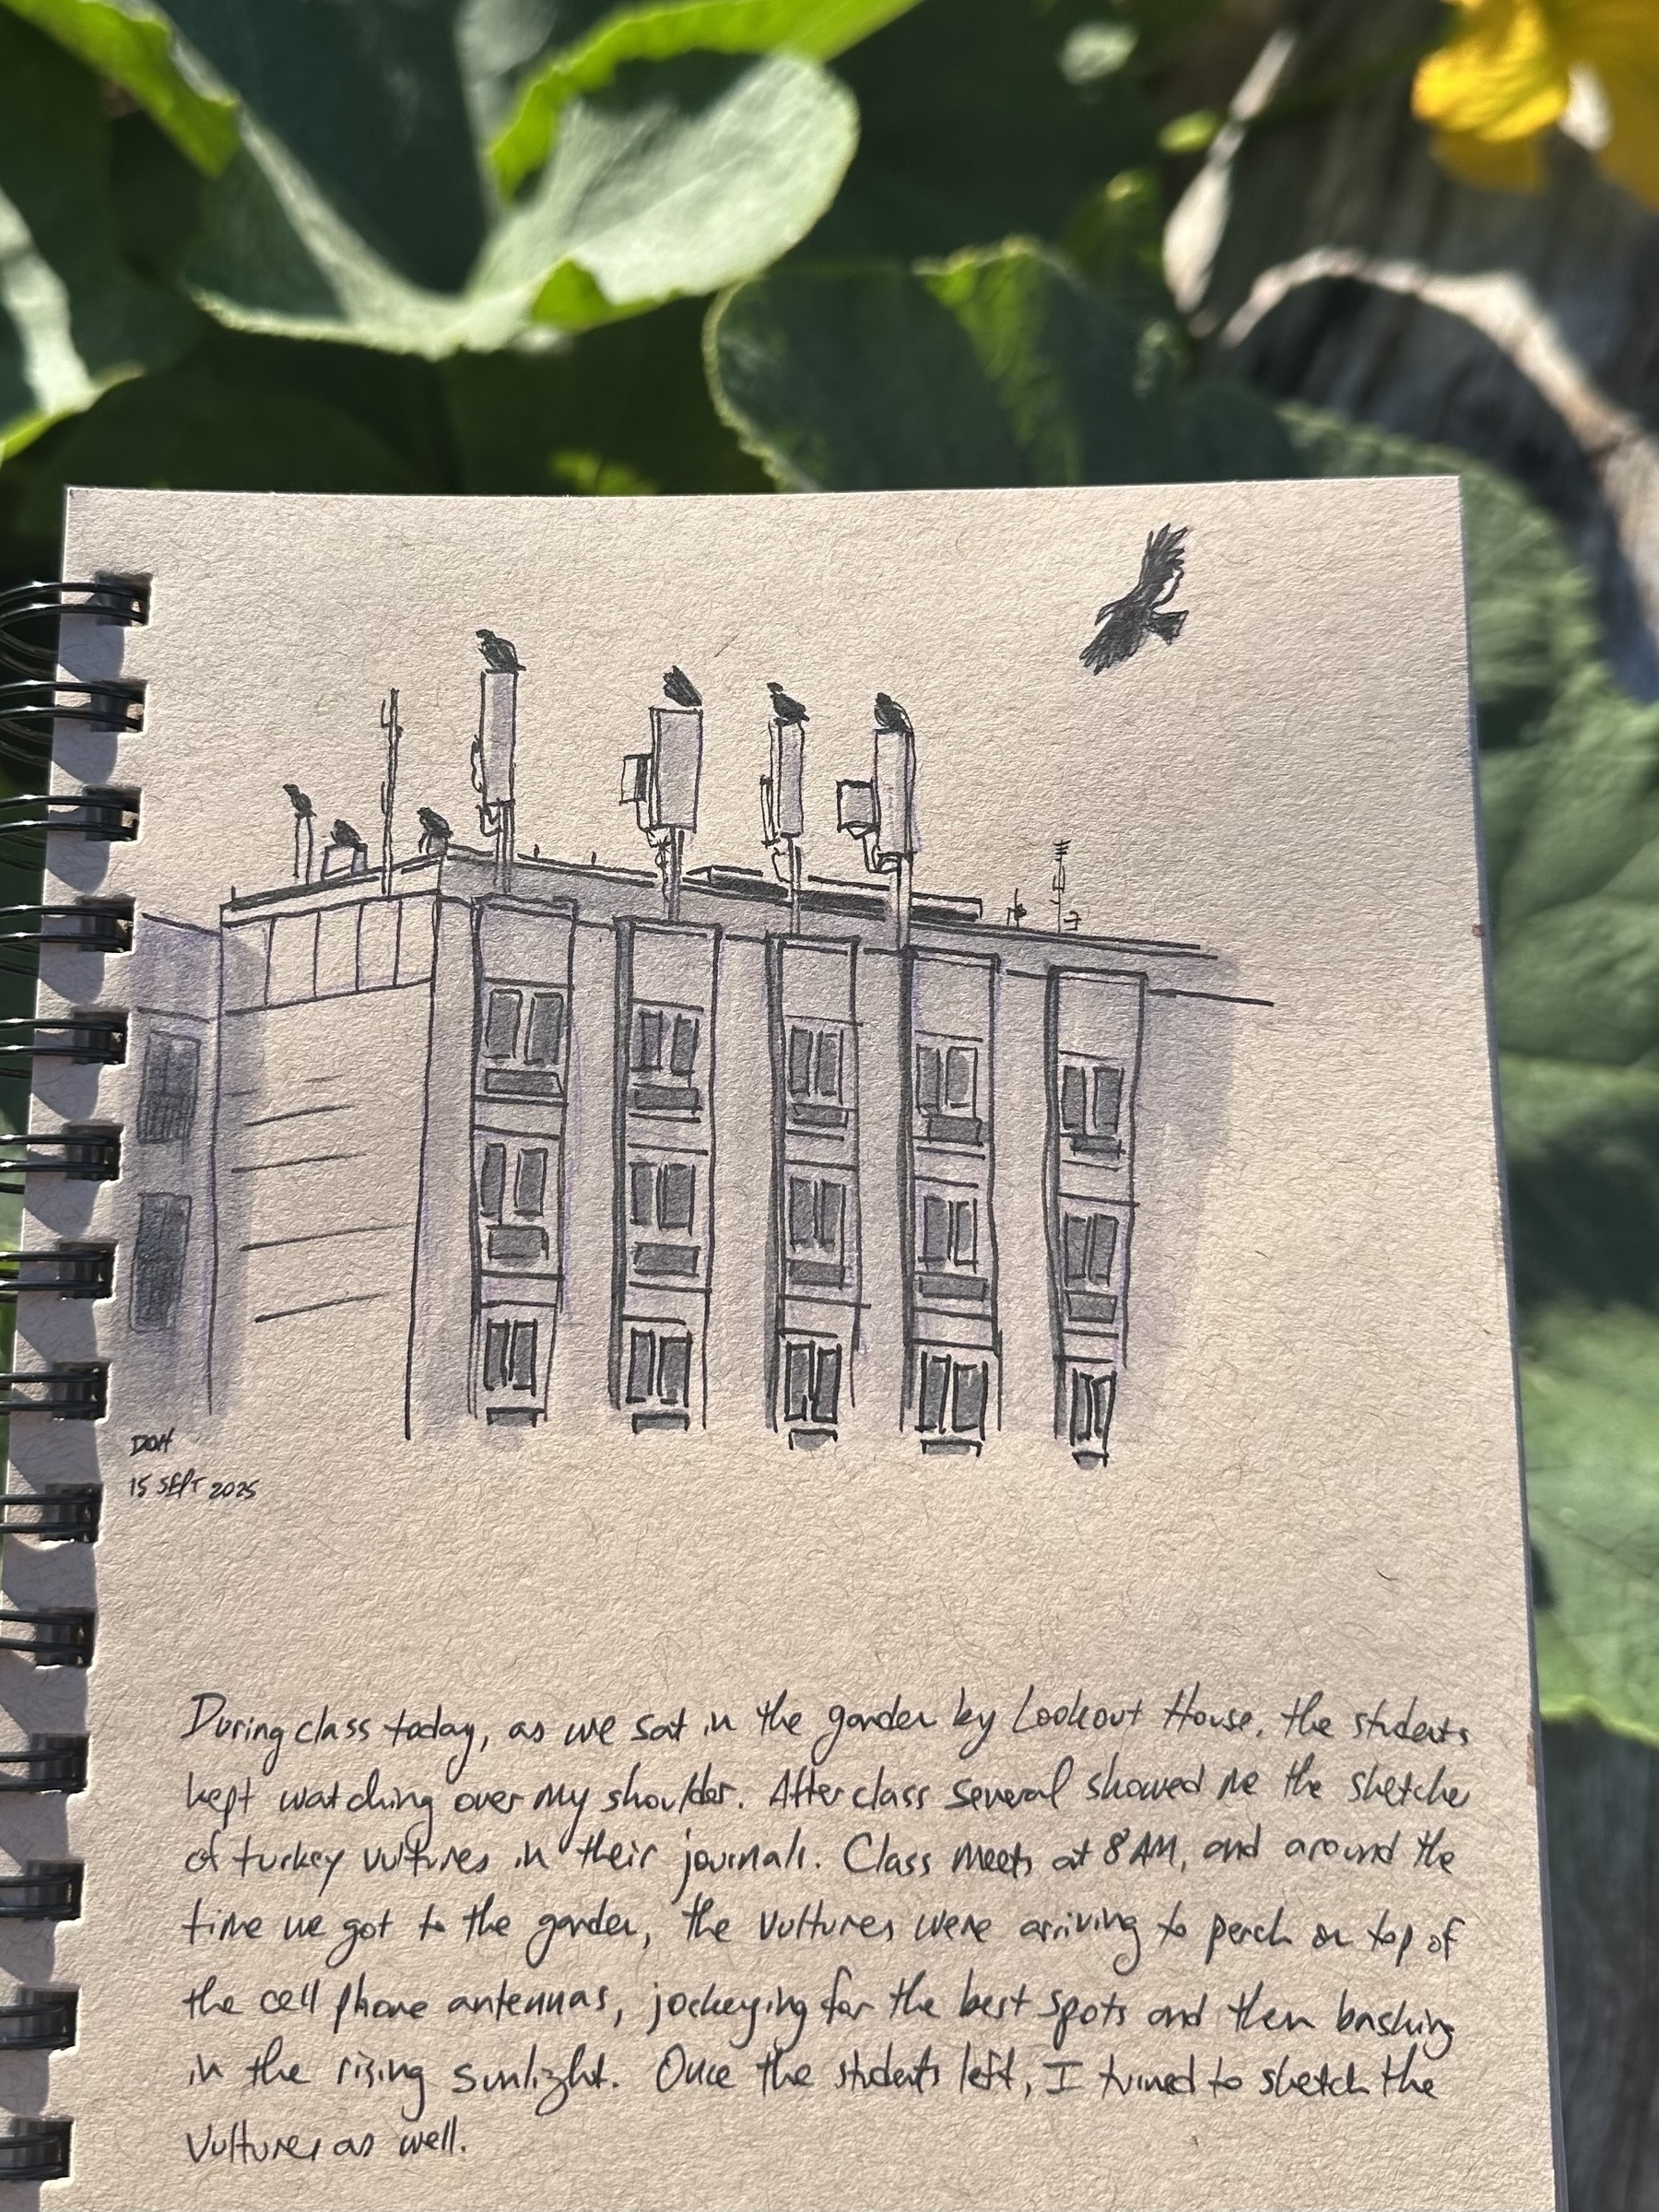 DOH
15 SEPT 2025
During class today, as we sat in the garden by Lookout House, the students
kept watching over my shoulder. After class several showed me the sketches
of turkey vultures in their journals. Class meets at 8 AM, and around the
time we got to the garden, the vultures were arriving to perch on top of
the cell phone antennas, jockeying for the best spots and then basking
in the rising sunlight. Once the students left, I turned to sketch the
vultures as well.